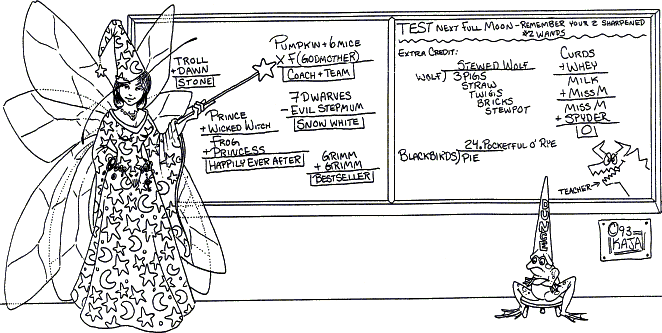 TROLL
+DAWN
STONE
PUMPKIN+6 MICE
X F(GODMOTHER)
COACH+TEAM
7 DWARVES
- EVIL STEPMUM
SNOW WHITE
PRINCE
+WICKED WITCH
FROG
+PRINCESS
HAPPILY EVER AFTER
GRIMM
+GRIMM
BESTSELLER
TEST NEXT FULL MOON - REMEMBER YOUR 2 SHARPENED
#2 WANDS
EXTRA CREDIT:
STEWED WOLF
WOLF) 3 PIGS
STRAW
TWIGS
BRICKS
STEWPOT
24. POCKETFUL O' RYE
BLACKBIRDS) PIE
CURDS
+WHEY
MILK
+MISS M
MISS M
+SPYDER
0
TEACHER
DUNCE
©93
KAJA